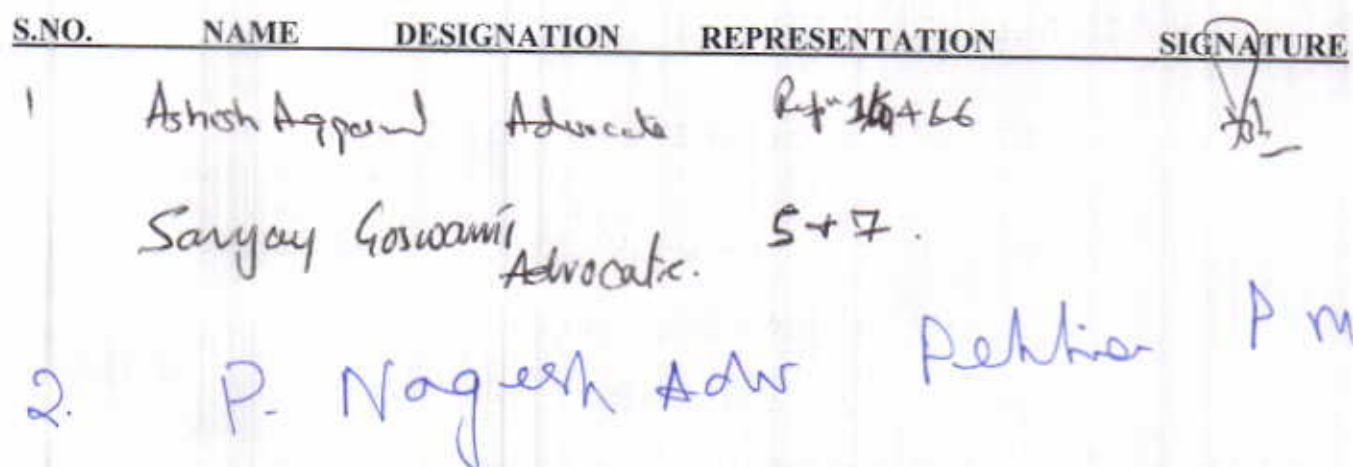 S.NO. NAME DESIGNATION REPRESENTATION SIGNATURE
1 Ashish Aggarwal Advocate
Sanjay Goswami Advocate. 5+7.
2. P. Nagesh Adv Petitioner P